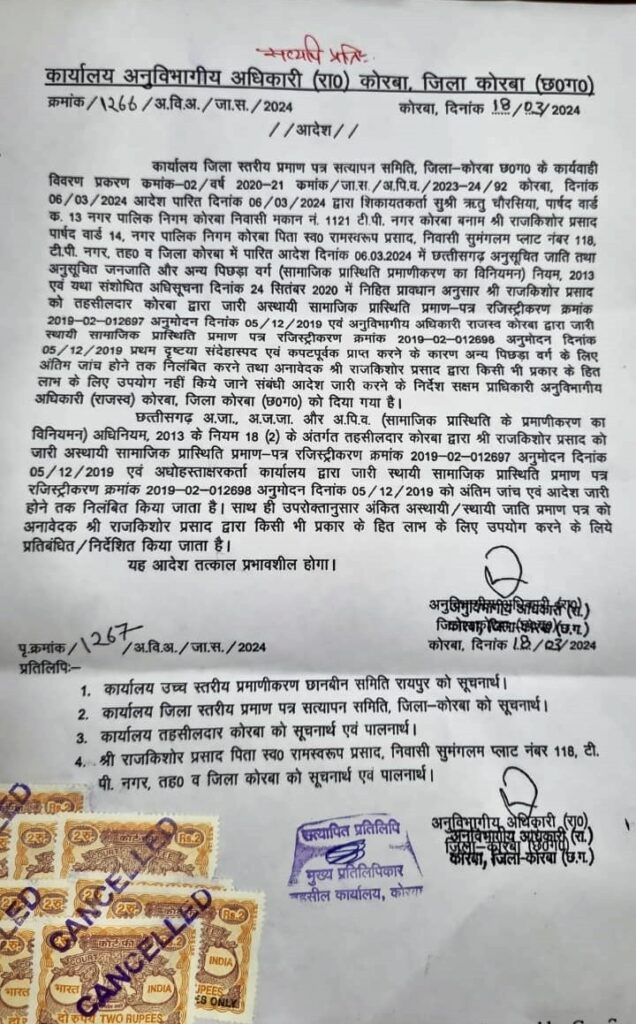 सत्यापि प्रतिः
कार्यालय अनुविभागीय अधिकारी (रा0) कोरबा, जिला कोरबा (छ0ग0)
क्रमांक/1266/अ.वि.अ./जा.स./2024 कोरबा, दिनांक 18/03/2024
//आदेश//
कार्यालय जिला स्तरीय प्रमाण पत्र सत्यापन समिति, जिला–कोरबा छ0ग0 के कार्यवाही
विवरण प्रकरण कमांक-02/वर्ष 2020-21 कमांक/जा.स./अ.पि.व./2023-24/92 कोरबा, दिनांक
06/03/2024 आदेश पारित दिनांक 06/03/2024 द्वारा शिकायतकर्ता सुश्री ऋतु चौरसिया, पार्षद वार्ड
क. 13 नगर पालिक निगम कोरबा निवासी मकान नं. 1121 टी.पी. नगर कोरबा बनाम श्री राजकिशोर प्रसाद
पार्षद वार्ड 14, नगर पालिक निगम कोरबा पिता स्व0 रामस्वरूप प्रसाद, निवासी सुमंगलम प्लाट नंबर 118,
टी.पी. नगर, तह0 व जिला कोरबा में पारित आदेश दिनांक 06.03.2024 में छत्तीसगढ़ अनुसूचित जाति तथा
अनुसूचित जनजाति और अन्य पिछड़ा वर्ग (सामाजिक प्रास्थिति प्रमाणीकरण का विनियमन) नियम, 2013
एवं यथा संशोधित अधिसूचना दिनांक 24 सितंबर 2020 में निहित प्रावधान अनुसार श्री राजकिशोर प्रसाद
को तहसीलदार कोरबा द्वारा जारी अस्थायी सामाजिक प्रास्थिति प्रमाण-पत्र रजिस्ट्रीकरण क्रमांक
2019-02-012697 अनुमोदन दिनांक 05/12/2019 एवं अनुविभागीय अधिकारी राजस्व कोरबा द्वारा जारी
स्थायी सामाजिक प्रास्थिति प्रमाण पत्र रजिस्ट्रीकरण क्रमांक 2019-02-012698 अनुमोदन दिनांक
05/12/2019 प्रथम दृष्टया संदेहास्पद एवं कपटपूर्वक प्राप्त करने के कारण अन्य पिछड़ा वर्ग के लिए
अंतिम जांच होने तक निलंबित करने तथा अनावेदक श्री राजकिशोर प्रसाद द्वारा किसी भी प्रकार के हित
लाभ के लिए उपयोग नहीं किये जाने संबंधी आदेश जारी करने के निर्देश सक्षम प्राधिकारी अनुविभागीय
अधिकारी (राजस्व) कोरबा, जिला कोरबा (छ0ग0) को दिया गया है।
छत्तीसगढ़ अ.जा., अ.ज.जा. और अ.पि.व. (सामाजिक प्रास्थिति के प्रमाणीकरण का
विनियमन) अधिनियम, 2013 के नियम 18 (2) के अंतर्गत तहसीलदार कोरबा द्वारा श्री राजकिशोर प्रसाद को
जारी अस्थायी सामाजिक प्रास्थिति प्रमाण–पत्र रजिस्ट्रीकरण क्रमांक 2019-02-012697 अनुमोदन दिनांक
05/12/2019 एवं अधोहस्ताक्षरकर्ता कार्यालय द्वारा जारी स्थायी सामाजिक प्रास्थिति प्रमाण पत्र
रजिस्ट्रीकरण क्रमांक 2019-02-012698 अनुमोदन दिनांक 05/12/2019 को अंतिम जांच एवं आदेश जारी
होने तक निलंबित किया जाता है। साथ ही उपरोक्तानुसार अंकित अस्थायी/स्थायी जाति प्रमाण पत्र को
अनावेदक श्री राजकिशोर प्रसाद द्वारा किसी भी प्रकार के हित लाभ के लिए उपयोग करने के लिये
प्रतिबंधित/निर्देशित किया जाता है।
यह आदेश तत्काल प्रभावशील होगा।
अनुविभागीय अधिकारी (रा0)
जिला–कोरबा, जिला–कोरबा (छ.ग.)
कोरबा, दिनांक 18/03/2024
पृ.क्रमांक/1267/अ.वि.अ./जा.स./2024
प्रतिलिपिः–
1. कार्यालय उच्च स्तरीय प्रमाणीकरण छानबीन समिति रायपुर को सूचनार्थ।
2. कार्यालय जिला स्तरीय प्रमाण पत्र सत्यापन समिति, जिला–कोरबा को सूचनार्थ।
3. कार्यालय तहसीलदार कोरबा को सूचनार्थ एवं पालनार्थ।
4. श्री राजकिशोर प्रसाद पिता स्व0 रामस्वरूप प्रसाद, निवासी सुमंगलम प्लाट नंबर 118, टी.
पी. नगर, तह0 व जिला कोरबा को सूचनार्थ एवं पालनार्थ।
अनुविभागीय अधिकारी (रा0)
अनुविभागीय अधिकारी (रा.)
जिला–कोरबा (छ0ग0)
कोरबा, जिला-कोरबा (छ.ग.)
सत्यापित प्रतिलिपि
मुख्य प्रतिलिपिकार
तहसील कार्यालय, कोरबा
2रु. Rs.2
CANCELLED
2रु. Rs.2
CANCELLED
कोर्ट फी
भारत INDIA
दो रुपये TWO RUPEES